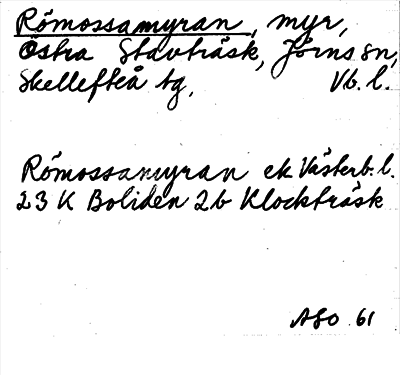 Römossamyran, myr,
Östra Stavträsk, Jörns sn,
Skellefteå tg, Vb. l.
Römossamyran ek Västerb. l.
23 K Boliden 2b Klockträsk
ASO 61